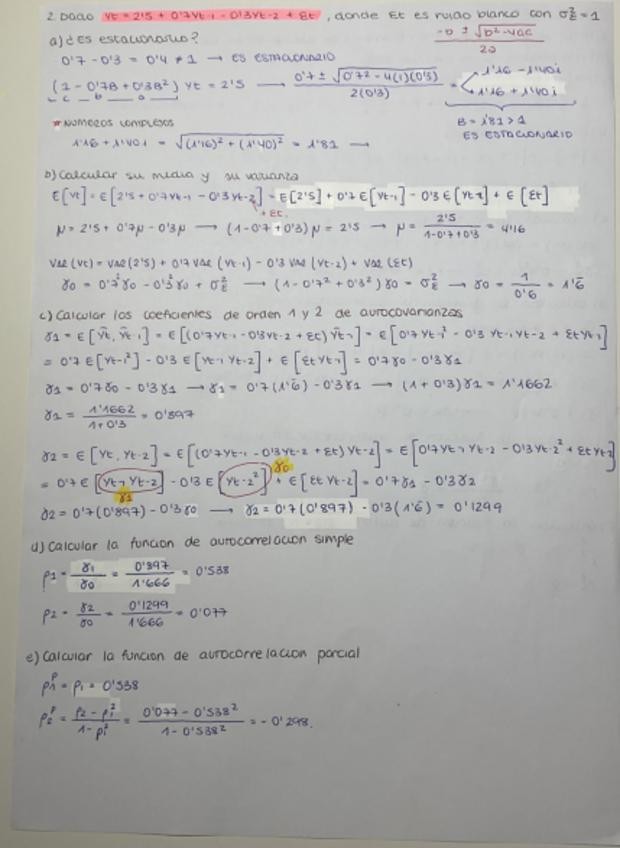 2. Dado yt = 2'5 + 0'7yt-1 - 0'3yt-2 + εt, donde εt es ruido blanco con σ²ε = 1
a) ¿Es estacionario?
-b ± √b²-4ac / 2a
0'7 - 0'3 = 0'4 ≠ 1 → ES ESTACIONARIO
(1 - 0'7B + 0'3B²) yt = 2'5 → 0'7 ± √0'7² - 4(1)(0'3) / 2(0'3) = 1'16 - 1'40i
1'16 + 1'40i
c b a
B = 1'81 > 1
ES ESTACIONARIO
* Números complejos
1'16 + 1'40i = √(1'16)² + (1'40)² = 1'81 →
b) Calcular su media y su varianza
E[yt] = E[2'5 + 0'7yt-1 - 0'3yt-2] = E[2'5] + 0'7E[yt-1] - 0'3E[yt-2] + E[εt]
+ εt
μ = 2'5 + 0'7μ - 0'3μ → (1 - 0'7 + 0'3)μ = 2'5 → μ = 2'5 / 1-0'7+0'3 = 4'16
VAR(yt) = VAR(2'5) + 0'7 VAR(yt-1) - 0'3 VAR(yt-2) + VAR(εt)
γ0 = 0'7²γ0 - 0'3²γ0 + σ²ε → (1 - 0'7² + 0'3²)γ0 = σ²ε → γ0 = 1 / 0'6 = 1'6
c) Calcular los coeficientes de orden 1 y 2 de autocovarianzas
γ1 = E[ỹt, ỹt-1] = E[(0'7yt-1 - 0'3yt-2 + εt) ỹt-1] = E[0'7yt-1² - 0'3 yt-1 yt-2 + εt yt-1]
= 0'7E[yt-1²] - 0'3E[yt-1 yt-2] + E[εt yt-1] = 0'7γ0 - 0'3γ1
γ1 = 0'7γ0 - 0'3γ1 → γ1 = 0'7(1'6) - 0'3γ1 → (1 + 0'3)γ1 = 1'1662
γ1 = 1'1662 / 1+0'3 = 0'897
γ2 = E[yt, yt-2] = E[(0'7yt-1 - 0'3yt-2 + εt) yt-2] = E[0'7yt-1 yt-2 - 0'3yt-2² + εt yt-2]
γ0
= 0'7E[yt-1 yt-2] - 0'3E[yt-2²] + E[εt yt-2] = 0'7γ1 - 0'3γ2
γ1
γ2 = 0'7(0'897) - 0'3γ0 → γ2 = 0'7(0'897) - 0'3(1'6) = 0'1299
d) Calcular la función de autocorrelación simple
ρ1 = γ1 / γ0 = 0'897 / 1'666 = 0'538
ρ2 = γ2 / γ0 = 0'1299 / 1'666 = 0'077
e) Calcular la función de autocorrelación parcial
ρ1ᵖ = ρ1 = 0'538
ρ2ᵖ = ρ2 - ρ1² / 1 - ρ1² = 0'077 - 0'538² / 1 - 0'538² = -0'298.